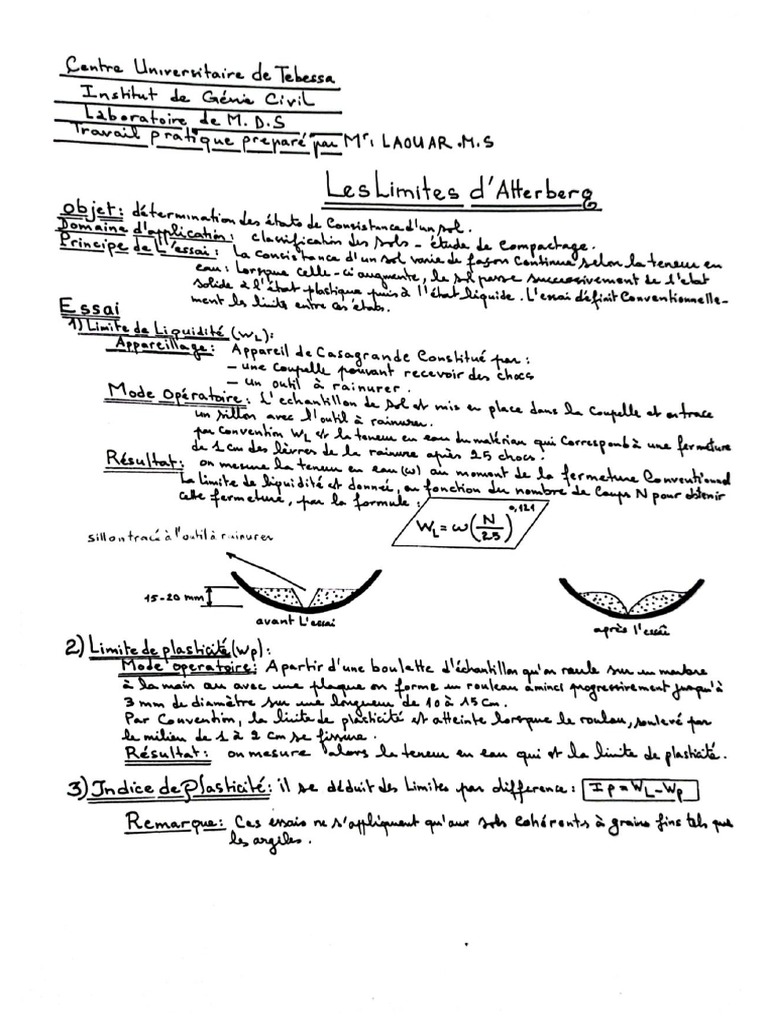 Centre Universitaire de Tebessa
Institut de Génie Civil
Laboratoire de M.D.S
Travail pratique preparé par Mr: LAOUAR.M.S
Les Limites d'Atterberg
Objet: détermination des états de Consistance d'un sol.
Domaine d'application: classification des sols - étude de compactage.
Principe de L'essai: La consistance d'un sol varie de façon Continue selon la teneur en
eau: Lorsque celle-ci augmente, le sol passe successivement de l'état
solide à l'état plastique puis à l'état liquide. L'essai définit Conventionnelle-
ment les limits entre ces états.
Essai
1) Limite de Liquidité (WL):
Appareillage: Appareil de Casagrande Constitué par:
- une coupelle pouvant recevoir des chocs
- un outil à rainurer.
Mode Opératoire: L'echantillon de sol est mis en place dans la Coupelle et on trace
un sillon avec l'outil à rainurer.
par convention WL est la teneur en eau du matériau qui correspond à une fermeture
de 1 cm des lèvres de la rainure après 25 chocs.
Résultat: on mesure la teneur en eau (ω) au moment de la fermeture Conventionnel
La limite de liquidité est donnée, en fonction du nombre de Coups N pour obtenir
cette fermeture, par la formule:
WL = ω (N/25)^0,121
sillon tracé à l'outil à rainurer
15-20 mm
avant L'essai
après l'essai
2) Limite de plasticité (Wp):
Mode operatoire: A partir d'une boulette d'échantillon qu'on roule sur un marbre
à la main ou avec une plaque on forme un rouleau aminci progressivement jusqu'à
3 mm de diamètre sur une longueur de 10 à 15 cm.
Par Convention, la limite de plasticité est atteinte lorsque le rouleau, soulevé par
le milieu de 1 à 2 cm se fissure.
Résultat: on mesure alors la teneur en eau qui est la limite de plasticité.
3) Indice de Plasticité: il se déduit des Limites par difference: Ip = WL - Wp
Remarque: Ces essais ne s'appliquent qu'aux sols Cohérents à grains fins tels que
les argiles.